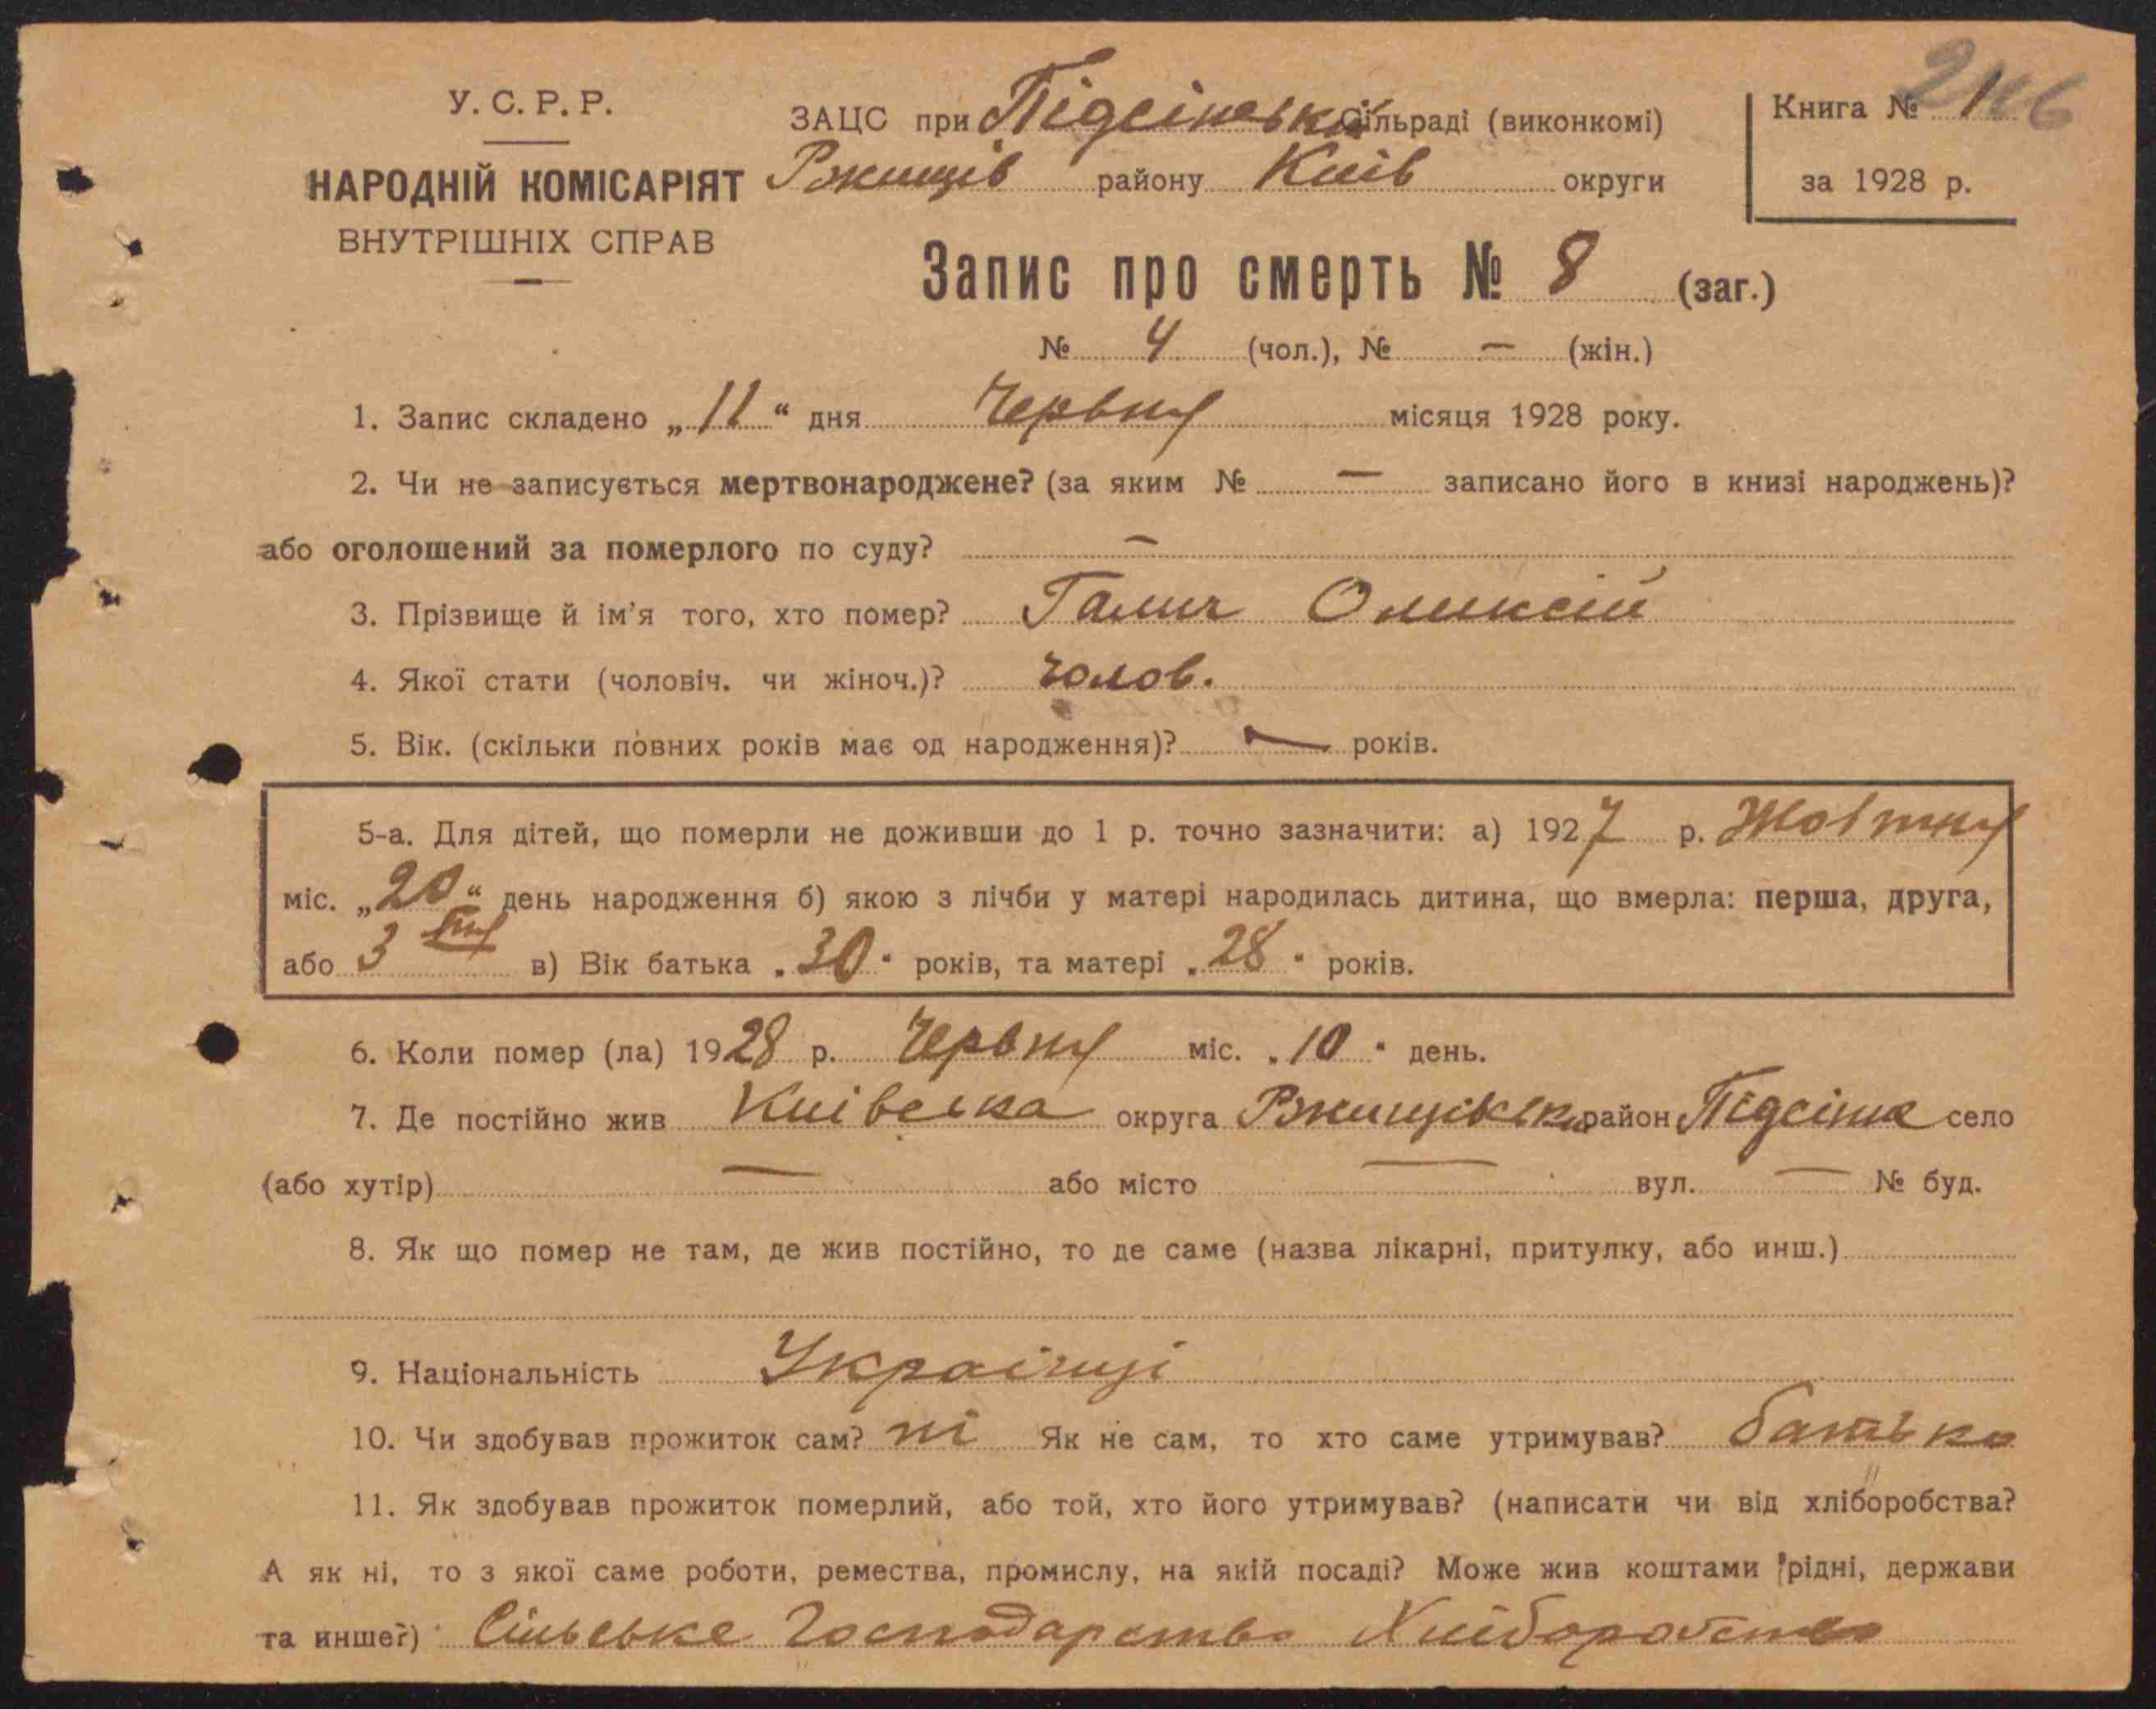 У. С. Р. Р.
НАРОДНІЙ КОМІСАРІЯТ
ВНУТРІШНІХ СПРАВ
ЗАЦС при Підсінській сільраді (виконкомі)
Ржищів району Київ округи
Книга № 1
за 1928 р.
Запис про смерть № 8 (заг.)
№ 4 (чол.), № — (жін.)
1. Запис складено „11“ дня Червня місяця 1928 року.
2. Чи не записується мертвонароджене? (за яким № — записано його в книзі народжень)?
або оголошений за померлого по суду? —
3. Прізвище й ім'я того, хто помер? Галич Олексій
4. Якої стати (чоловіч. чи жіноч.)? чолов.
5. Вік. (скільки повних років має од народження)? — років.
5-а. Для дітей, що померли не доживши до 1 р. точно зазначити: а) 1927 р. Жовтня
міс. „20“ день народження б) якою з лічби у матері народилась дитина, що вмерла: перша, друга,
або 3 тя в) Вік батька „30“ років, та матері „28“ років.
6. Коли помер (ла) 1928 р. Червня міс. „10“ день.
7. Де постійно жив Київська округа Ржищівськ район Підсінне село
(або хутір) — або місто — вул. — № буд.
8. Як що помер не там, де жив постійно, то де саме (назва лікарні, притулку, або инш.)
9. Національність Українці
10. Чи здобував прожиток сам? ні Як не сам, то хто саме утримував? батько
11. Як здобував прожиток померлий, або той, хто його утримував? (написати чи від хліборобства?
А як ні, то з якої саме роботи, ремества, промислу, на якій посаді? Може жив коштами рідні, держави
та инше?) Сільське Господарство Хліборобство